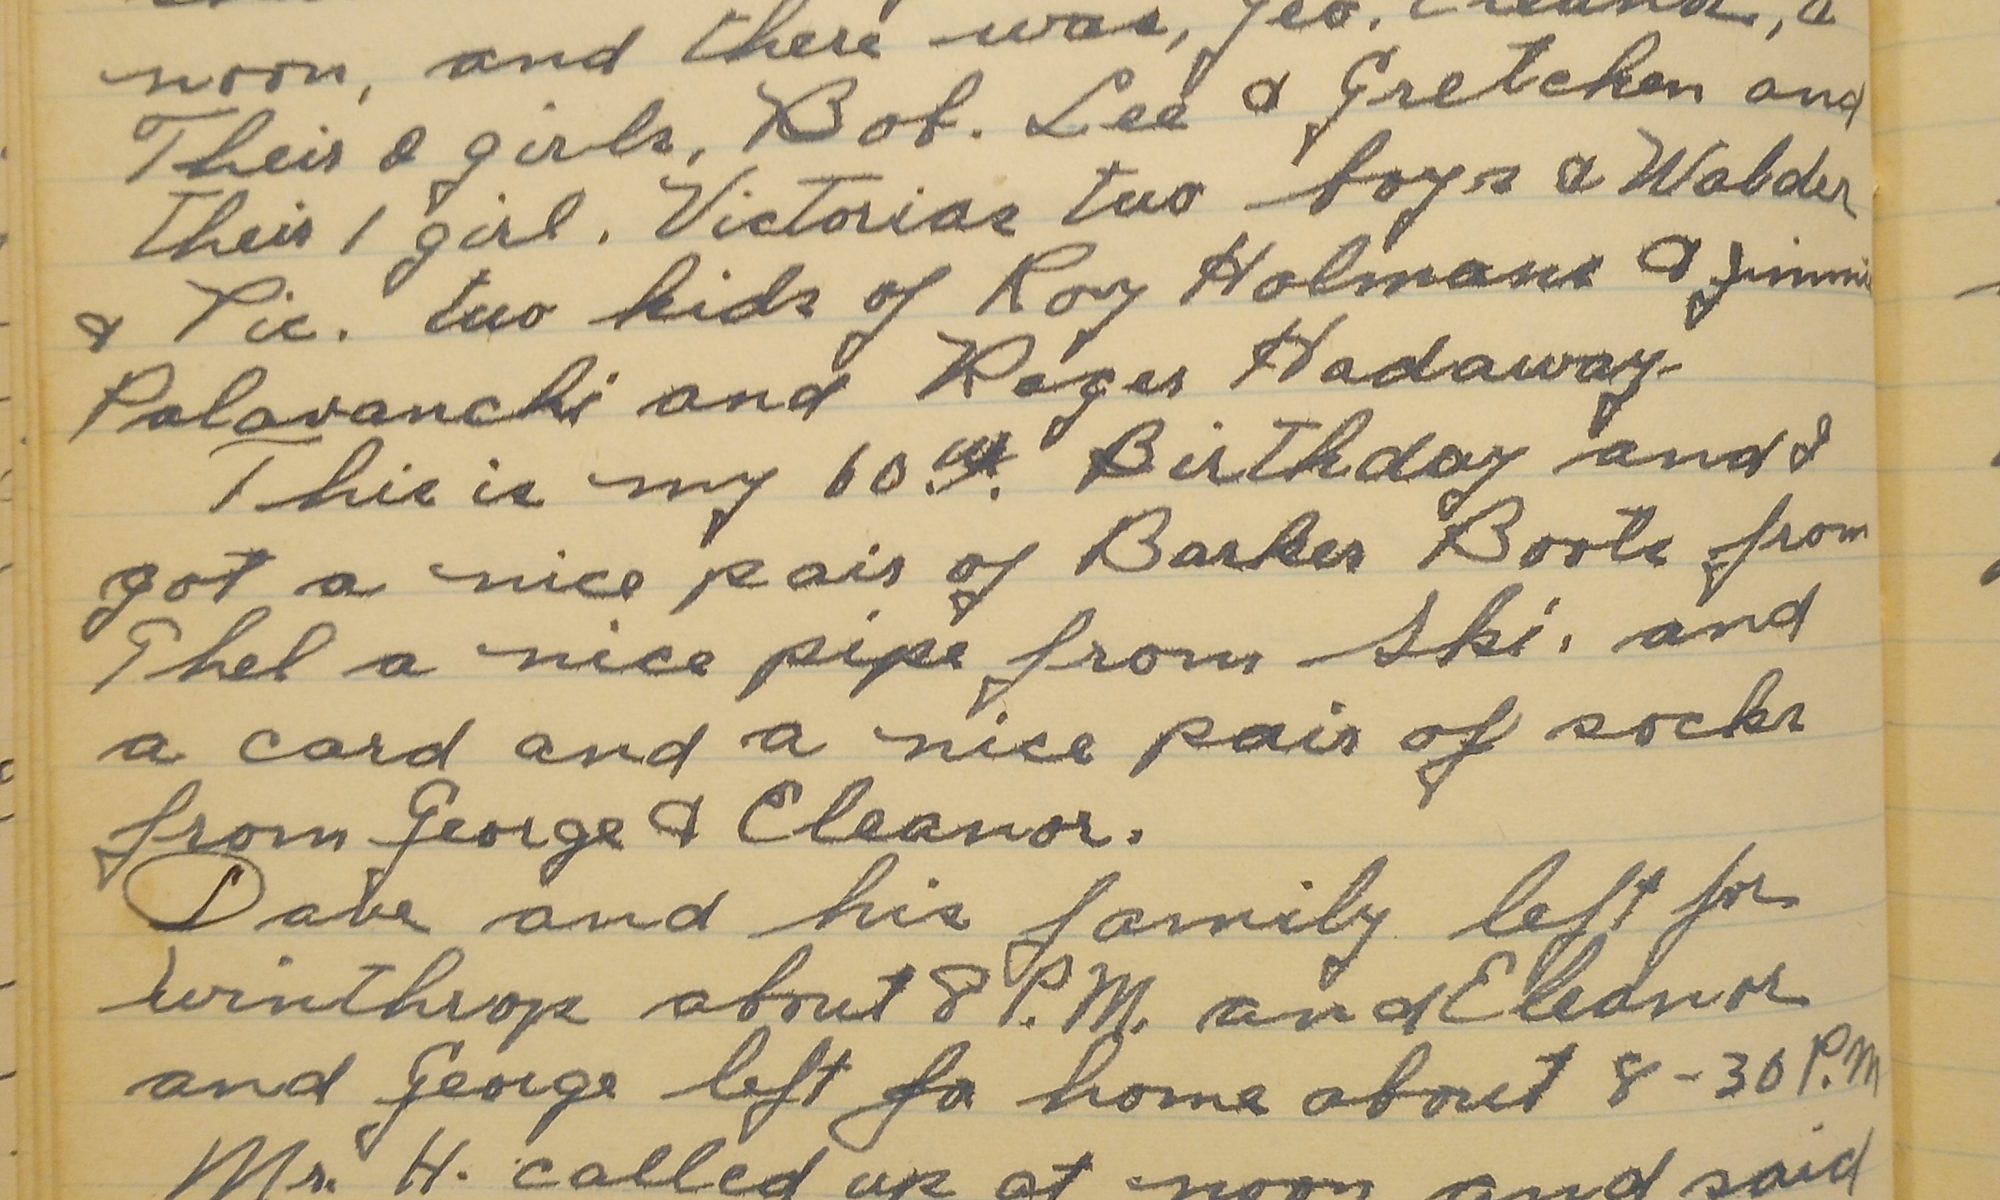 noon, and there was, Geo. Eleanor, &
Their 2 girls, Bob. Lee & Gretchen and
their 1 girl. Victorias two boys &
& Vic. two kids of Roy Holmans & Jimmie
Palavanchi and Roger Hadaway.
This is my 60 Birthday and I
got a nice pair of Barker Boots from
Thel a nice pipe from Ski. and
a card and a nice pair of socks
from George & Eleanor.
Dave and his family left for
Winthrop about 8 P.M. and Eleanor
and George left fo home about 8-30 P.M
Mr. H. called up at noon and said